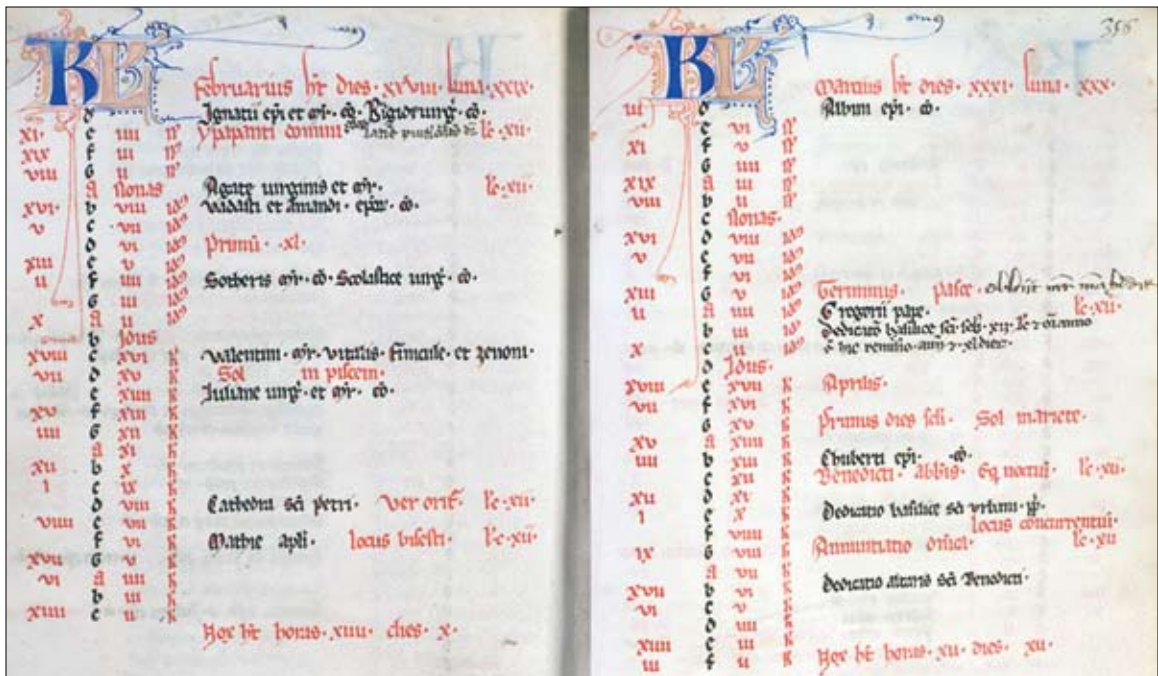 KL
Februarius ht dies · xxviii · luna · xxix ·
d Ignatii epi et mr · co · Brigide uirg · co ·
xi · e iiii N Ypapanti domini le · xii ·
xix f iii N
viii G ii N
a Nonas Agate uirginis et mr · le · xii ·
xvi · b viii id Vedasti et Amandi · epor · co ·
v c vii id
d vi id Primu · xl ·
xiii e v id
ii f iiii id Sotheris mr · co · Scolastice uirg · co ·
G iii id
x a ii id
b Idus
xviii c xvi k Valentini · mr · Vitalis · Felicule · et Zenonis ·
vii d xv k Sol in piscem ·
e xiiii k Juliane uirg · et mr · co ·
xv f xiii k
iiii G xii k
a xi k
xii b x k
i c ix k
d viii k Cathedra sci Petri · Ver orit · le · xii ·
viiii e vii k
f vi k Mathie apli · locus bisesti · le · xii ·
xvii G v k
vi a iiii k
b iii k
xiiii c ii k
Nox ht horas · xiiii · dies · x ·
356
KL
Martius ht dies · xxxi · luna · xxx ·
iii d Albini epi · co ·
e vi N
xi f v N
G iiii N
xix a iii N
viii b ii N
c Nonas ·
xvi d viii id
v e vii id
f vi id
xiii G v id Terminus · pasce · obiit
ii a iiii id Gregorii pape · le · xii ·
b iii id Dedicatio basilice sci
x c ii id
d Idus ·
xviii e xvii k Aprilis ·
vii f xvi k
G xv k Primus dies scli · Sol in ariete ·
xv a xiiii k
iiii b xiii k Chuberti epi · co ·
c xii k Benedicti · abbis · Eq noctiu · le · xii ·
xii d xi k
i e x k Dedicatio basilice sci Vrbani · pp ·
f viiii k locus concurrentiu ·
ix G viii k Annuntiatio dnica · le · xii
a vii k
xvii b vi k Dedicatio altaris sci Benedicti ·
vi c v k
d iiii k
xiiii e iii k
iii f ii k Nox ht horas · xii · dies · xii ·